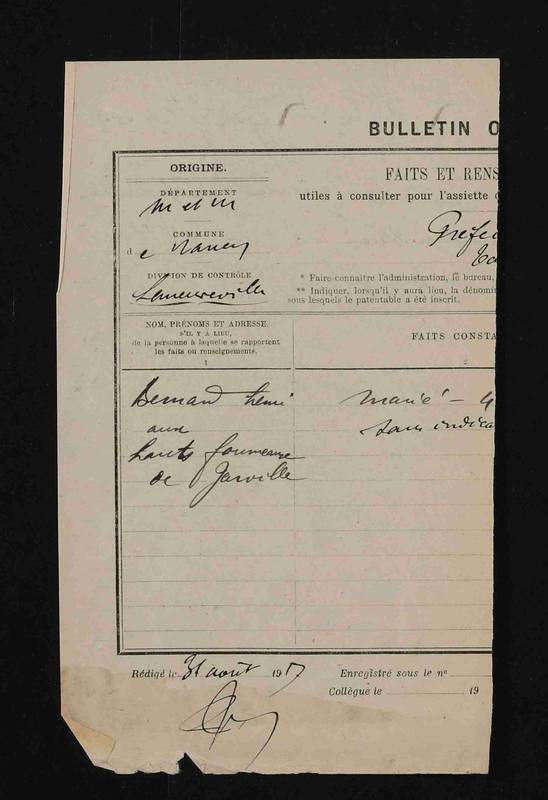 BULLETIN
ORIGINE.
FAITS ET RENS
DÉPARTEMENT
utiles à consulter pour l'assiette
M et M
COMMUNE
de Nancy
DIVISION DE CONTRÔLE
* Faire connaître l'administration, le bureau,
Laneuveville
** Indiquer, lorsqu'il y aura lieu, la dénomi
sous lesquels le patentable a été inscrit.
NOM, PRÉNOMS ET ADRESSE,
S'IL Y A LIEU,
de la personne à laquelle se rapportent
les faits ou renseignements.
FAITS CONSTA
1
2
Bernard Henri
marié - 4
aux
sans indica
hauts fourneaux
de Jarville
Rédigé le 31 août 1917
Enregistré sous le nº
Collègue le 19